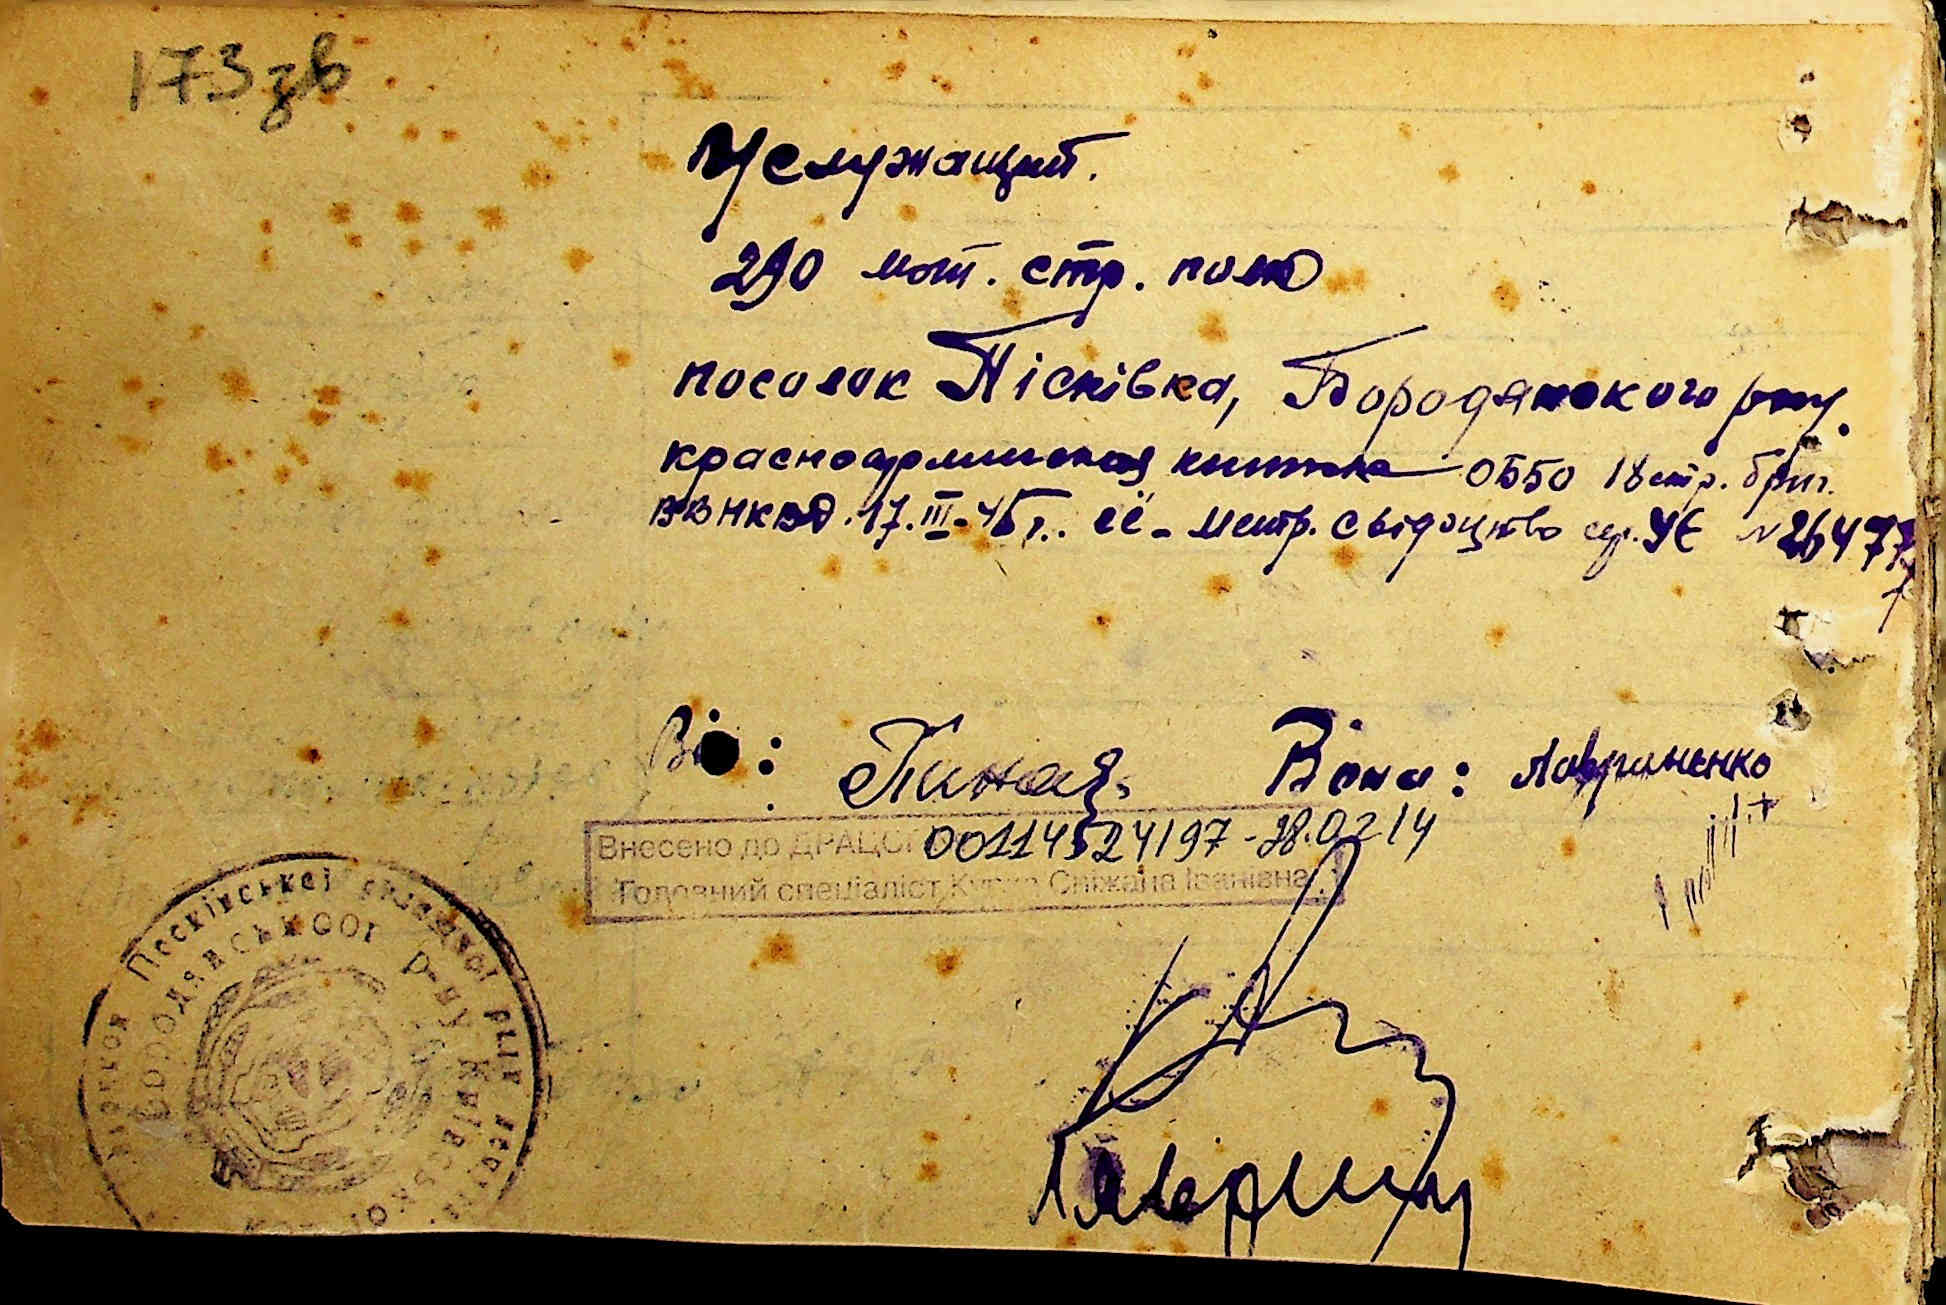 173 зв
служащий.
290 мот. стр. полк
поселок Пісківка, Бородянского рну.
красноармейская книжка 0550 18 стр. бриг.
ВВ НКВД. 17.III-45 г.. её - Метр. свідоцтво сер. УЄ № 26477
Він: Вона: Лавриненко
Внесено до ДРАЦС 00114524197 - 28.02 14
Головний спеціаліст Сніжана Іванівна
Пісківської селищної ради
Бородянського р-ну Київської